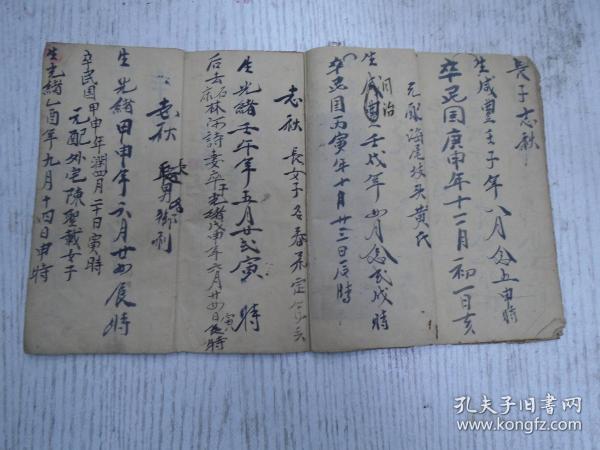 長子志秋
生咸豊壬子年八月念五申時
卒民国庚申年十二月初一日亥
元配海尾坡头黄氏
同治
生咸豊壬戌年四月念弍戌時
卒民国丙寅年十月廿三日辰時
志秋 長女子名春
生光緒壬午年五月廿弍寅時
后去 林河詩妻卒光緒戊申年六月廿四寅時
志秋 長男
生光緒甲申年六月廿四辰時
卒民国甲申年潤四月二十日寅時
元配外宅陳聖載女子
生光緒乙酉年九月十四日申時
孔夫子旧书网